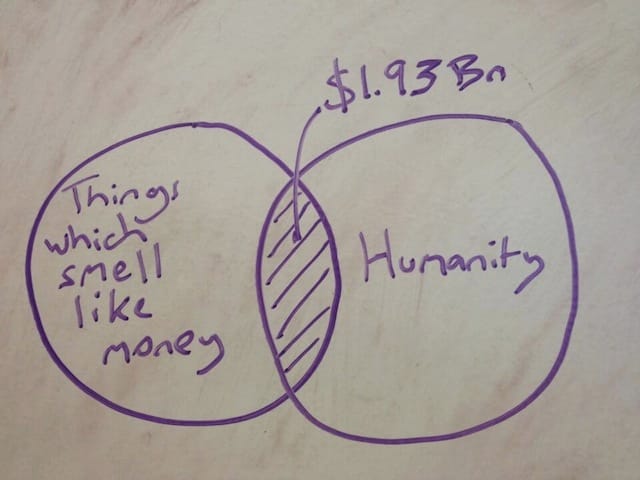 $1.93 Bn
Things
which
smell
like
money
Humanity